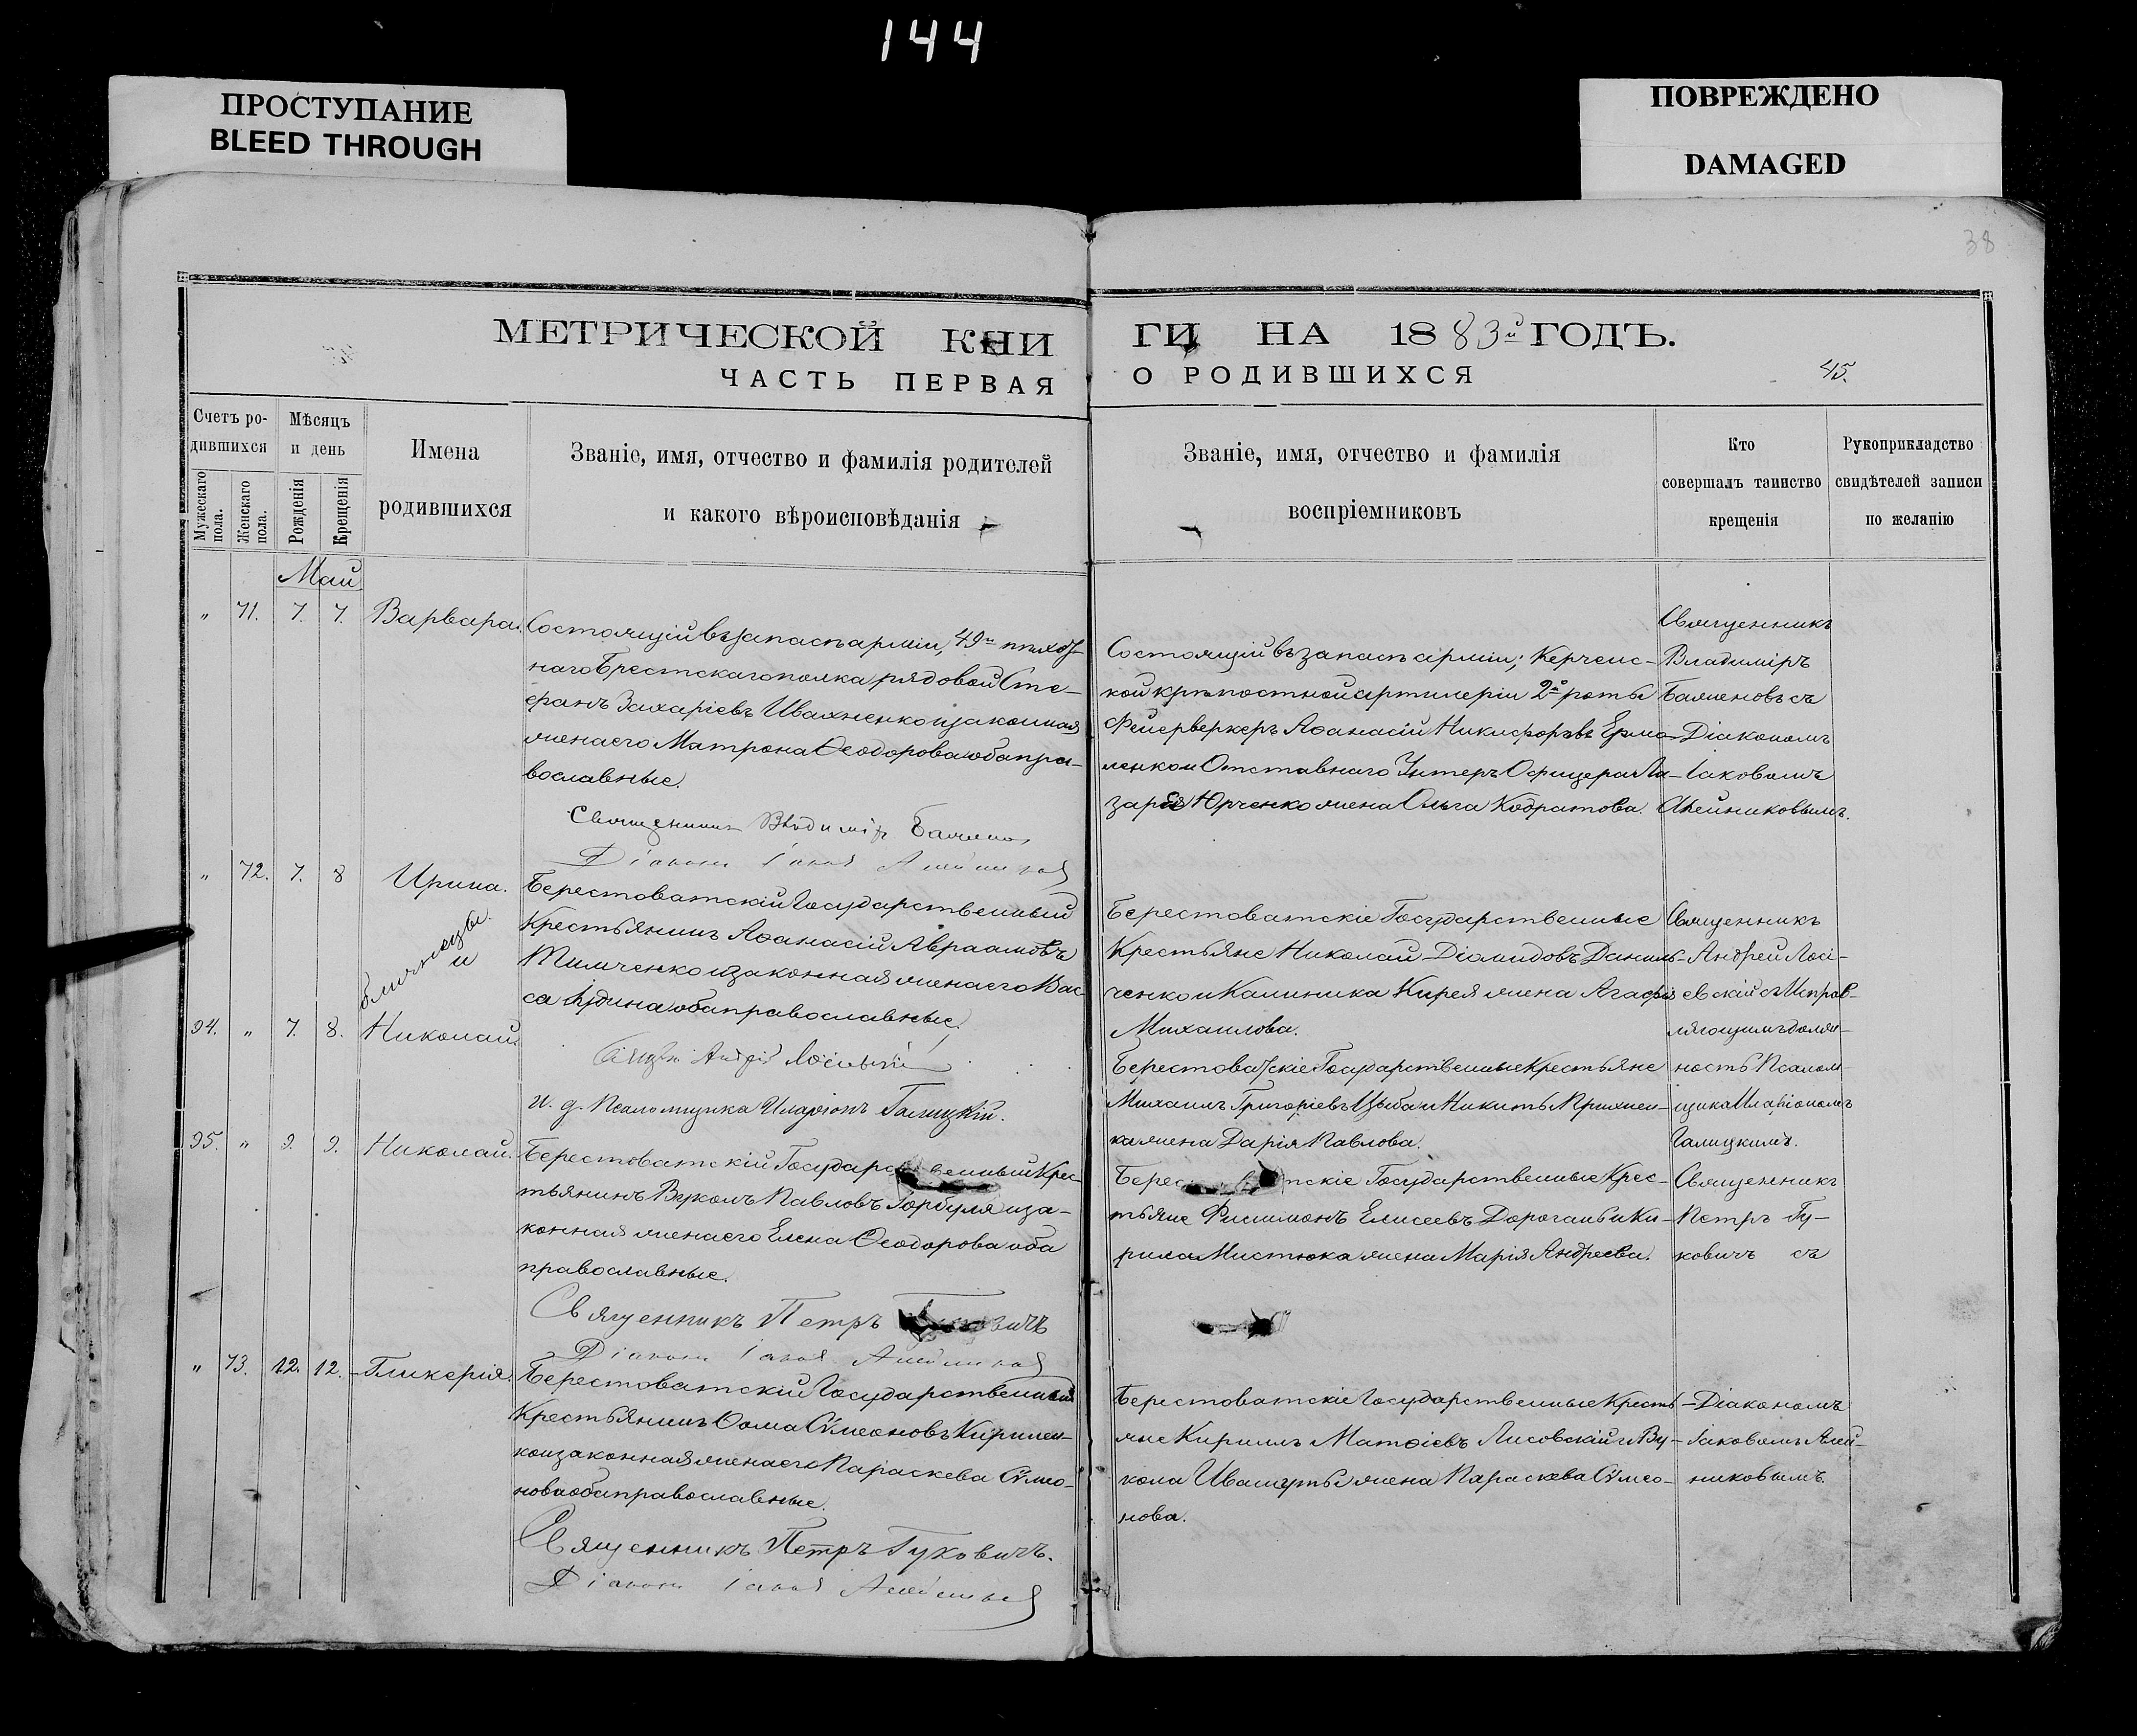 144
ПРОСТУПАНИЕ
BLEED THROUGH
ПОВРЕЖДЕНО
DAMAGED
38
МЕТРИЧЕСКОЙ КНИ
ГИ НА 1883й ГОДЪ.
ЧАСТЬ ПЕРВАЯ
О РОДИВШИХСЯ
45.
Счетъ ро-
дившихся
Мужескаго
пола.
Женскаго
пола.
Мѣсяцъ
и день
Рожденія
Крещенія
Имена
родившихся
Званіе, имя, отчество и фамилія родителей
и какого вѣроисповѣданія
Званіе, имя, отчество и фамилія
воспріемниковъ
Кто
совершалъ таинство
крещенія
Рукоприкладство
свидѣтелей записи
по желанію
Май
„ 71. 7. 7. Варвара.
Состоящій въ запасѣ арміи, 49го пѣхот-
наго Брестскаго полка рядовой Сте-
фанъ Захаріевъ Ивахненко и законная
жена его Матрона Ѳеодорова оба пра-
вославные.
Священникъ Владиміръ Баженовъ
Діаконъ Іаковъ Алейниковъ
Состоящій въ запасѣ арміи; Керченс-
кой крѣпостной артилеріи 2й роты
Фейерверкеръ Аѳанасій Никифоровъ Ермо-
ленко и Отставнаго Унтеръ Офицера Ла-
зарія Юрченко жена Ольга Кодратова.
Священникъ
Владиміръ
Баженовъ съ
Діакономъ
Іаковомъ
Алейниковымъ.
„ 72. 7. 8 Ирина.
близнецы
и
94. „ 7. 8. Николай.
Берестоватскій Государственный
Крестьянинъ Аѳанасій Авраамовъ
Тимченко и законная жена его Вас-
са Іудина оба православные.
Андрей
и. д. Псаломщика Иларіонъ Галицкій.
Берестоватскіе Государственные
Крестьяне Николай Діомидовъ Даниль-
ченко и Калиника Кирея жена Агафія
Михаилова.
Берестоватскіе Государственные Крестьяне
Михаилъ Григоріевъ Цыба и Никиты Прихнен-
ка жена Дарія Павлова.
Священникъ
Андрей Лосі-
евскій съ Исправ-
ляющимъ долж-
ность Псалом-
щика Иларіономъ
Галицкимъ.
95. „ 9. 9. Николай.
Берестоватскій Государственный Крес-
тьянинъ Вуколъ Павловъ Горбуля и за-
конная жена его Елена Ѳеодорова оба
православные.
Священникъ Петръ Гуковичъ
Діаконъ Іаковъ Алейниковъ
Берестоватскіе Государственные Крес-
тьяне Филимонъ Елисеевъ Дорогань и Ки-
рила Мистюка жена Марія Андреева.
Священникъ
Петръ Гу-
ковичъ съ
„ 73. 12. 12. Гликерія.
Берестоватскій Государственный
Крестьянинъ Ѳома Сѵмеоновъ Кирилен-
ко и законная жена его Параскева Сѵмео-
нова оба православные.
Священникъ Петръ Гуковичъ.
Діаконъ Іаковъ Алейниковъ
Берестоватскіе Государственные Кресть-
яне Кириллъ Матѳіевъ Лисовскій и Ву-
кола Ивашуты жена Параскева Сѵмео-
нова.
Діакономъ
Іаковомъ Алей-
никовымъ